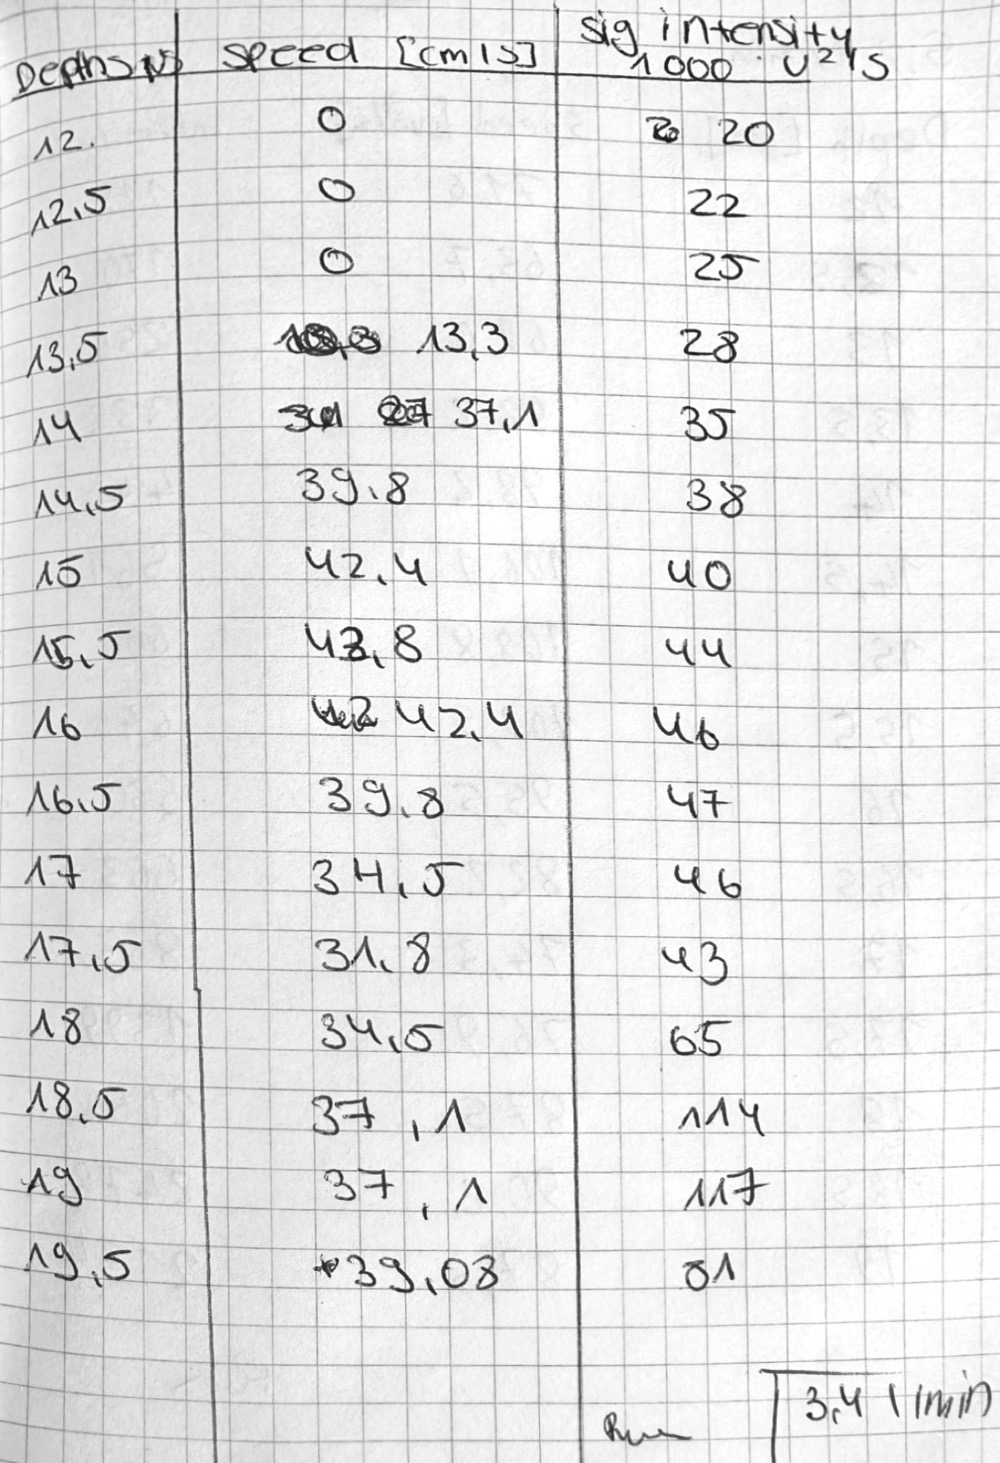 Depths μs speed [cm/s] sig intensity
1000 · U²/s
12. 0 20
12,5 0 22
13 0 25
13,5 13,3 28
14 37,1 35
14,5 39.8 38
15 42,4 40
15,5 43,8 44
16 42,4 46
16,5 39,8 47
17 34,5 46
17,5 31,8 43
18 34,5 65
18,5 37,1 114
19 37,1 117
19,5 39,08 81
3,4 l/min